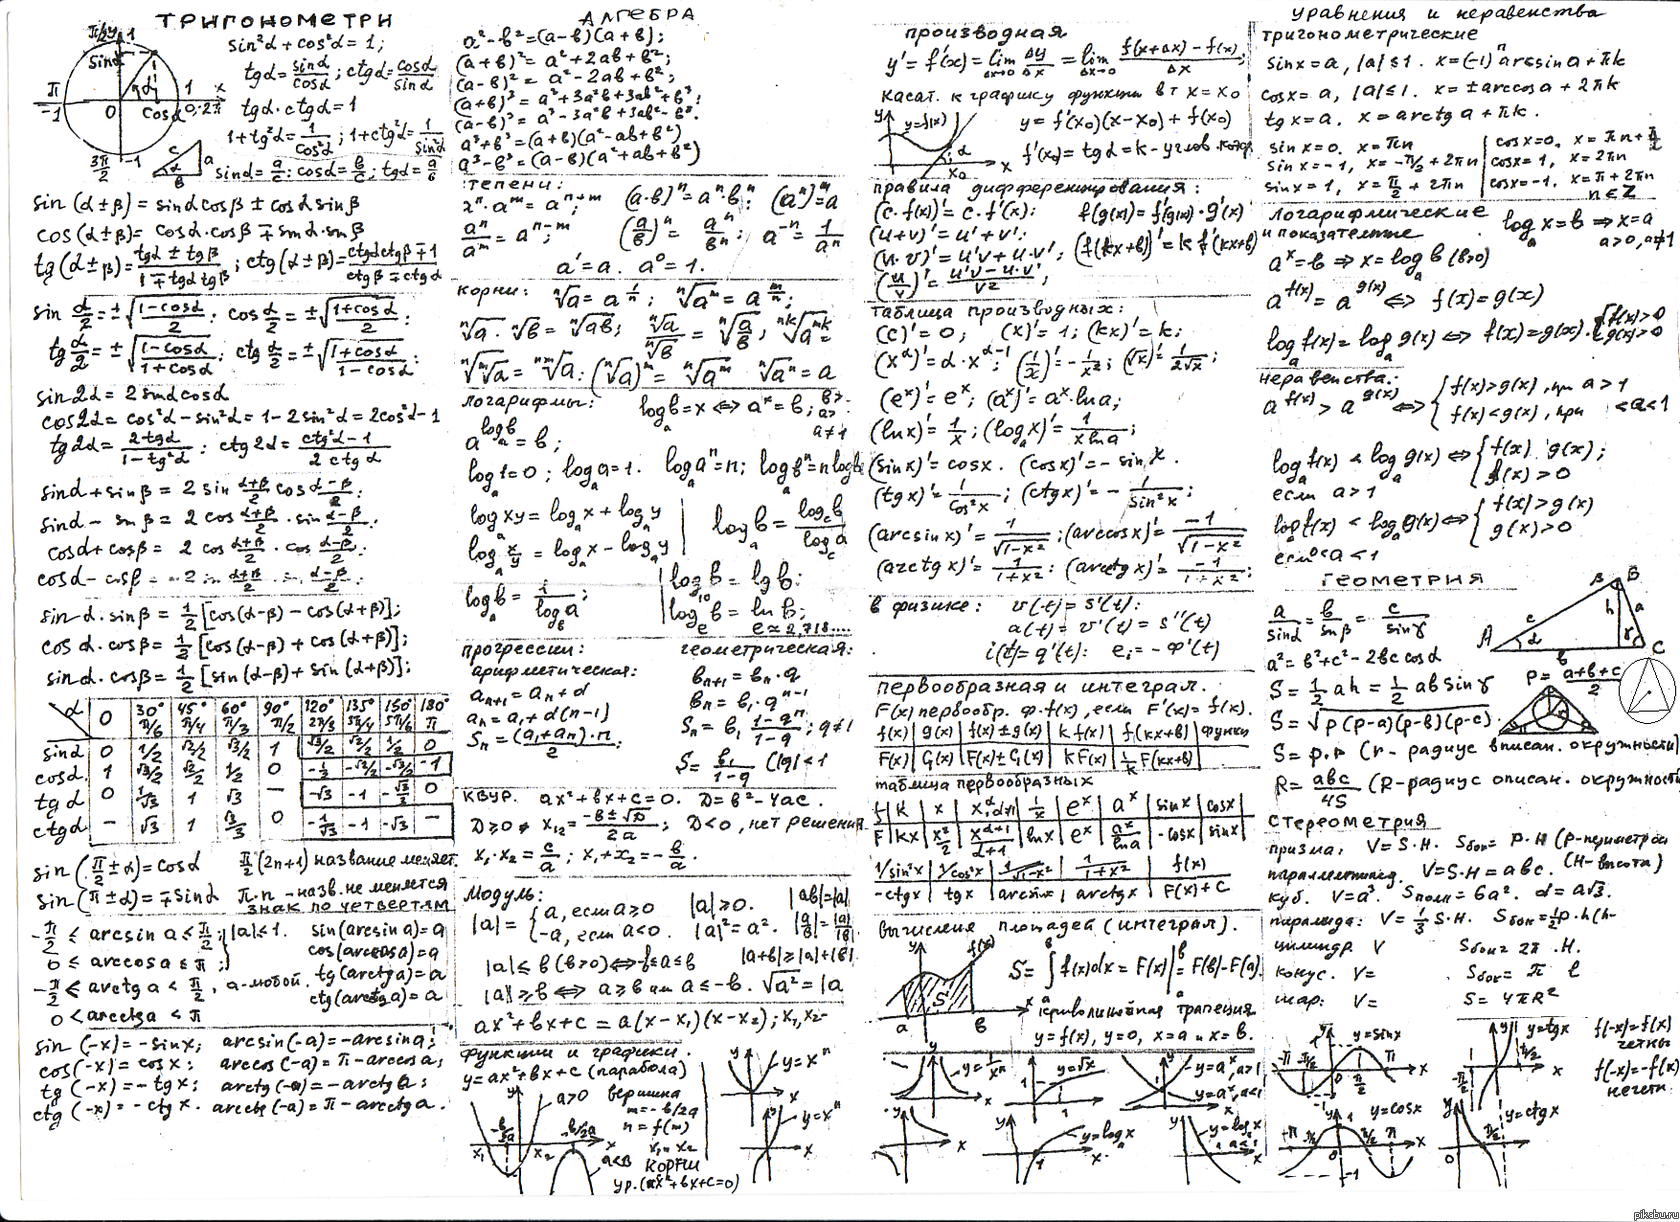 ТРИГОНОМЕТРИ
sin²α + cos²α = 1;
tgα = sinα/cosα; ctgα = cosα/sinα
tgα · ctgα = 1
1 + tg²α = 1/cos²α; 1 + ctg²α = 1/sin²α
sinα = a/c: cosα = b/c; tgα = a/b
sin(α±β) = sinα cosβ ± cosα sinβ
cos(α±β) = cosα·cosβ ∓ sinα·sinβ
tg(α±β) = (tgα ± tgβ)/(1 ∓ tgα tgβ); ctg(α±β) = (ctgα ctgβ ∓ 1)/(ctgβ ∓ ctgα)
sin α/2 = ±√((1-cosα)/2); cos α/2 = ±√((1+cosα)/2);
tg α/2 = ±√((1-cosα)/(1+cosα)); ctg α/2 = ±√((1+cosα)/(1-cosα));
sin2α = 2 sinα cosα
cos2α = cos²α - sin²α = 1 - 2sin²α = 2cos²α - 1
tg2α = 2tgα/(1-tg²α); ctg2α = (ctg²α - 1)/(2ctgα)
sinα + sinβ = 2 sin (α+β)/2 cos (α-β)/2
sinα - sinβ = 2 cos (α+β)/2 · sin (α-β)/2;
cosα + cosβ = 2 cos (α+β)/2 · cos (α-β)/2;
cosα - cosβ = -2 sin (α+β)/2 · sin (α-β)/2;
sinα·sinβ = 1/2 [cos(α-β) - cos(α+β)];
cosα·cosβ = 1/2 [cos(α-β) + cos(α+β)];
sinα·cosβ = 1/2 [sin(α-β) + sin(α+β)];
α 0 30° π/6 45° π/4 60° π/3 90° π/2 120° 2π/3 135° 150° 5π/6 180° π
sinα 0 1/2 √2/2 √3/2 1 √3/2 √2/2 1/2 0
cosα 1 √3/2 √2/2 1/2 0 -1/2 -√2/2 -√3/2 -1
tgα 0 1/√3 1 √3 — -√3 -1 -√3/3 0
ctgα — √3 1 √3/3 0 -1/√3 -1 -√3 —
sin(π/2 ± α) = cosα π/2(2n+1) название меняет.
sin(π ± α) = ∓sinα π·n - назв. не меняется
знак по четвертям
-π/2 ≤ arcsin a ≤ π/2; |a| ≤ 1. sin(arcsin a) = a
0 ≤ arccos a ≤ π; cos(arccos a) = a
-π/2 < arctg a < π/2, a-любой. tg(arctg a) = a
0 < arcctg a < π ctg(arcctg a) = a
sin(-x) = -sinx; arcsin(-a) = -arcsin a;
cos(-x) = cosx; arccos(-a) = π - arccos a;
tg(-x) = -tgx; arctg(-a) = -arctg a;
ctg(-x) = -ctgx. arcctg(-a) = π - arcctg a.
АЛГЕБРА
a² - b² = (a-b)(a+b);
(a+b)² = a² + 2ab + b²;
(a-b)² = a² - 2ab + b²;
(a+b)³ = a³ + 3a²b + 3ab² + b³;
(a-b)³ = a³ - 3a²b + 3ab² - b³.
a³ + b³ = (a+b)(a² - ab + b²)
a³ - b³ = (a-b)(a² + ab + b²)
тепени:
aⁿ·aᵐ = aⁿ⁺ᵐ (a·b)ⁿ = aⁿ·bⁿ;
aⁿ/aᵐ = aⁿ⁻ᵐ; (a/b)ⁿ = aⁿ/bⁿ; a⁻ⁿ = 1/aⁿ
a¹ = a. a⁰ = 1.
корни: ⁿ√a = a^(1/n); ⁿ√aᵐ = a^(m/n);
ⁿ√a · ⁿ√b = ⁿ√ab; ⁿ√a/ⁿ√b = ⁿ√(a/b); ⁿᵏ√aᵐᵏ =
ⁿ√ᵐ√a = ⁿᵐ√a: (ⁿ√a)ᵐ = ⁿ√aᵐ ⁿ√aⁿ = a
логарифмы: logₐb = x ⇔ aˣ = b; b> a> a≠1
a^(logₐb) = b;
logₐ1 = 0; logₐa = 1. logₐaⁿ = n; logₐbⁿ = n logₐb
logₐxy = logₐx + logₐy
logₐ x/y = logₐx - logₐy
logₐb = log_c b / log_c a
logₐb = 1/log_b a
log₁₀b = lg b;
log_e b = ln b;
e ≈ 2,718....
прогрессии:
арифметическая:
aₙ₊₁ = aₙ + d
aₙ = a₁ + d(n-1)
Sₙ = (a₁+aₙ)·n/2;
геометрическая:
bₙ₊₁ = bₙ·q
bₙ = b₁·qⁿ⁻¹
Sₙ = b₁ (1-qⁿ)/(1-q); q≠1
S = b₁/(1-q) (|q|<1
КВУР. ax² + bx + c = 0. D = b² - 4ac.
D ≥ 0 x₁₂ = (-b ± √D)/2a; D<0, нет решения
x₁·x₂ = c/a; x₁ + x₂ = -b/a.
Модуль:
|a| = { a, если a≥0
-a, если a<0.
|a| ≥ 0. |ab|=|a|
|a|² = a². |a/b| = |a|/|b|
|a| ≤ b (b>0) ⇔ -b≤a≤b |a+b| ≥ |a|+|b|
|a| ≥ b ⇔ a≥b или a≤-b. √a² = |a
ax² + bx + c = a(x-x₁)(x-x₂); x₁,x₂-
функции и графики.
y = ax² + bx + c (парабола)
a>0 вершина
m = -b/2a
n = f(m)
a<0 корни
ур.(ax²+bx+c=0)
y=xⁿ
y=xⁿ
производная
y' = f'(x) = lim Δx→0 Δy/Δx = lim Δx→0 (f(x+Δx) - f(x))/Δx;
касат. к графику функции в т x = x₀
y=f(x)
y = f'(x₀)(x-x₀) + f(x₀)
f'(x₀) = tgα = k - углов коэф.
правила дифференцирования:
(c·f(x))' = c·f'(x): f(g(x)) = f'(g(x))·g'(x)
(u+v)' = u' + v'. (f(kx+b))' = k f'(kx+b)
(u·v)' = u'v + u·v';
(u/v)' = (u'v - u·v')/v²
таблица производных:
(c)' = 0; (x)' = 1; (kx)' = k;
(x^α)' = α·x^(α-1); (1/x)' = -1/x²; (√x)' = 1/(2√x);
(eˣ)' = eˣ; (aˣ)' = aˣ·ln a;
(lnx)' = 1/x; (logₐx)' = 1/(x ln a);
(sinx)' = cosx. (cosx)' = -sinx.
(tgx)' = 1/cos²x; (ctgx)' = -1/sin²x;
(arcsinx)' = 1/√(1-x²); (arccosx)' = -1/√(1-x²)
(arctgx)' = 1/(1+x²); (arcctgx)' = -1/(1+x²);
в физике: v(t) = s'(t):
a(t) = v'(t) = s''(t)
i(t) = q'(t): eᵢ = -Ф'(t)
первообразная и интеграл.
F(x) первообр. ф. f(x), если F'(x) = f(x).
f(x) | g(x) | f(x)±g(x) | kf(x) | f(kx+b) | функци
F(x) | G(x) | F(x)±G(x) | kF(x) | 1/k F(kx+b) |
таблица первообразных
f | k | x | x^α, α≠1 | 1/x | eˣ | aˣ | sinx | cosx |
F | kx | x²/2 | x^(α+1)/(α+1) | lnx | eˣ | aˣ/lna | -cosx | sinx |
1/sin²x | 1/cos²x | 1/√(1-x²) | 1/(1+x²) | f(x)
-ctgx | tgx | arcsinx | arctgx | F(x)+C
вычисления площадей (интеграл).
S = ∫ f(x)dx = F(x)| = F(b) - F(a).
криволинейная трапеция
y = f(x), y=0, x=a и x=b.
y=1/xⁿ
y=√x
y=aˣ, a>1
y=aˣ, a<1
y=logₐx
y=logₐx
уравнения и неравенства
тригонометрические
sinx = a, |a|≤1. x = (-1)ⁿ arcsin a + πk
cosx = a, |a|≤1. x = ±arccos a + 2πk
tgx = a. x = arctg a + πk.
sinx = 0. x = πn
sinx = -1, x = -π/2 + 2πn
sinx = 1, x = π/2 + 2πn
cosx = 0, x = πn + π/2
cosx = 1, x = 2πn
cosx = -1. x = π + 2πn
n∈Z
логарифмические
и показательные
logₐx = b ⇒ x = a
a>0, a≠1
aˣ = b ⇒ x = logₐb (b>0)
a^f(x) = a^g(x) ⇔ f(x) = g(x)
logₐf(x) = logₐg(x) ⇔ f(x) = g(x). f(x)>0 g(x)>0
неравенства:
a^f(x) > a^g(x) ⇔ { f(x)>g(x), при a>1
f(x)<g(x), при <a<1
logₐf(x) < logₐg(x) ⇔ { f(x) g(x);
f(x)>0
если a>1
logₐf(x) < logₐg(x) ⇔ { f(x)>g(x)
g(x)>0
если <a<1
ГЕОМЕТРИЯ
a/sinα = b/sinβ = c/sinγ
a² = b² + c² - 2bc cosα
S = 1/2 ah = 1/2 ab sinγ
p = (a+b+c)/2
S = √p(p-a)(p-b)(p-c)
S = p·r (r - радиус вписан. окружности)
R = abc/4S (R - радиус описан. окружност
СТЕРЕОМЕТРИЯ
призма: V = S·H. Sбок = P·H (P-периметр
(H-высота)
V = S·H = abc.
куб. V = a³. Sполн = 6a². d = a√3.
V = 1/3 S·H. Sбок = 1/2 P·h (h-
цилиндр. V Sбок = 2π .H.
конус. V= Sбок = π l
шар: V= S = 4πR²
y=sinx
y=tgx
f(-x)=f(x)
четны
f(-x)=-f(x)
нечетн.
y=cosx
y=ctgx
pikabu.ru